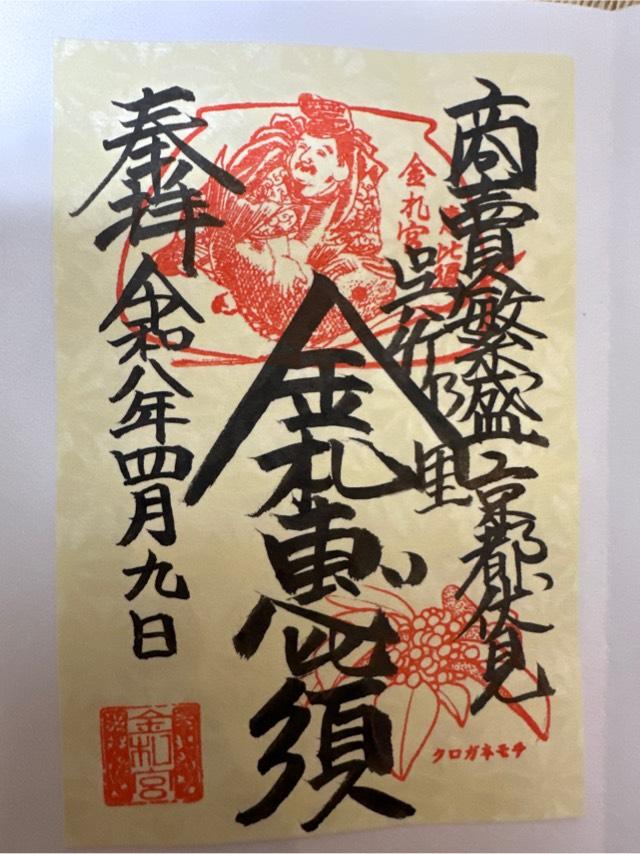 商賣繁盛京都伏見
呉竹の里
金札宮
金札恵比須
奉拝
令和八年四月九日
金札宮
クロガネモチ